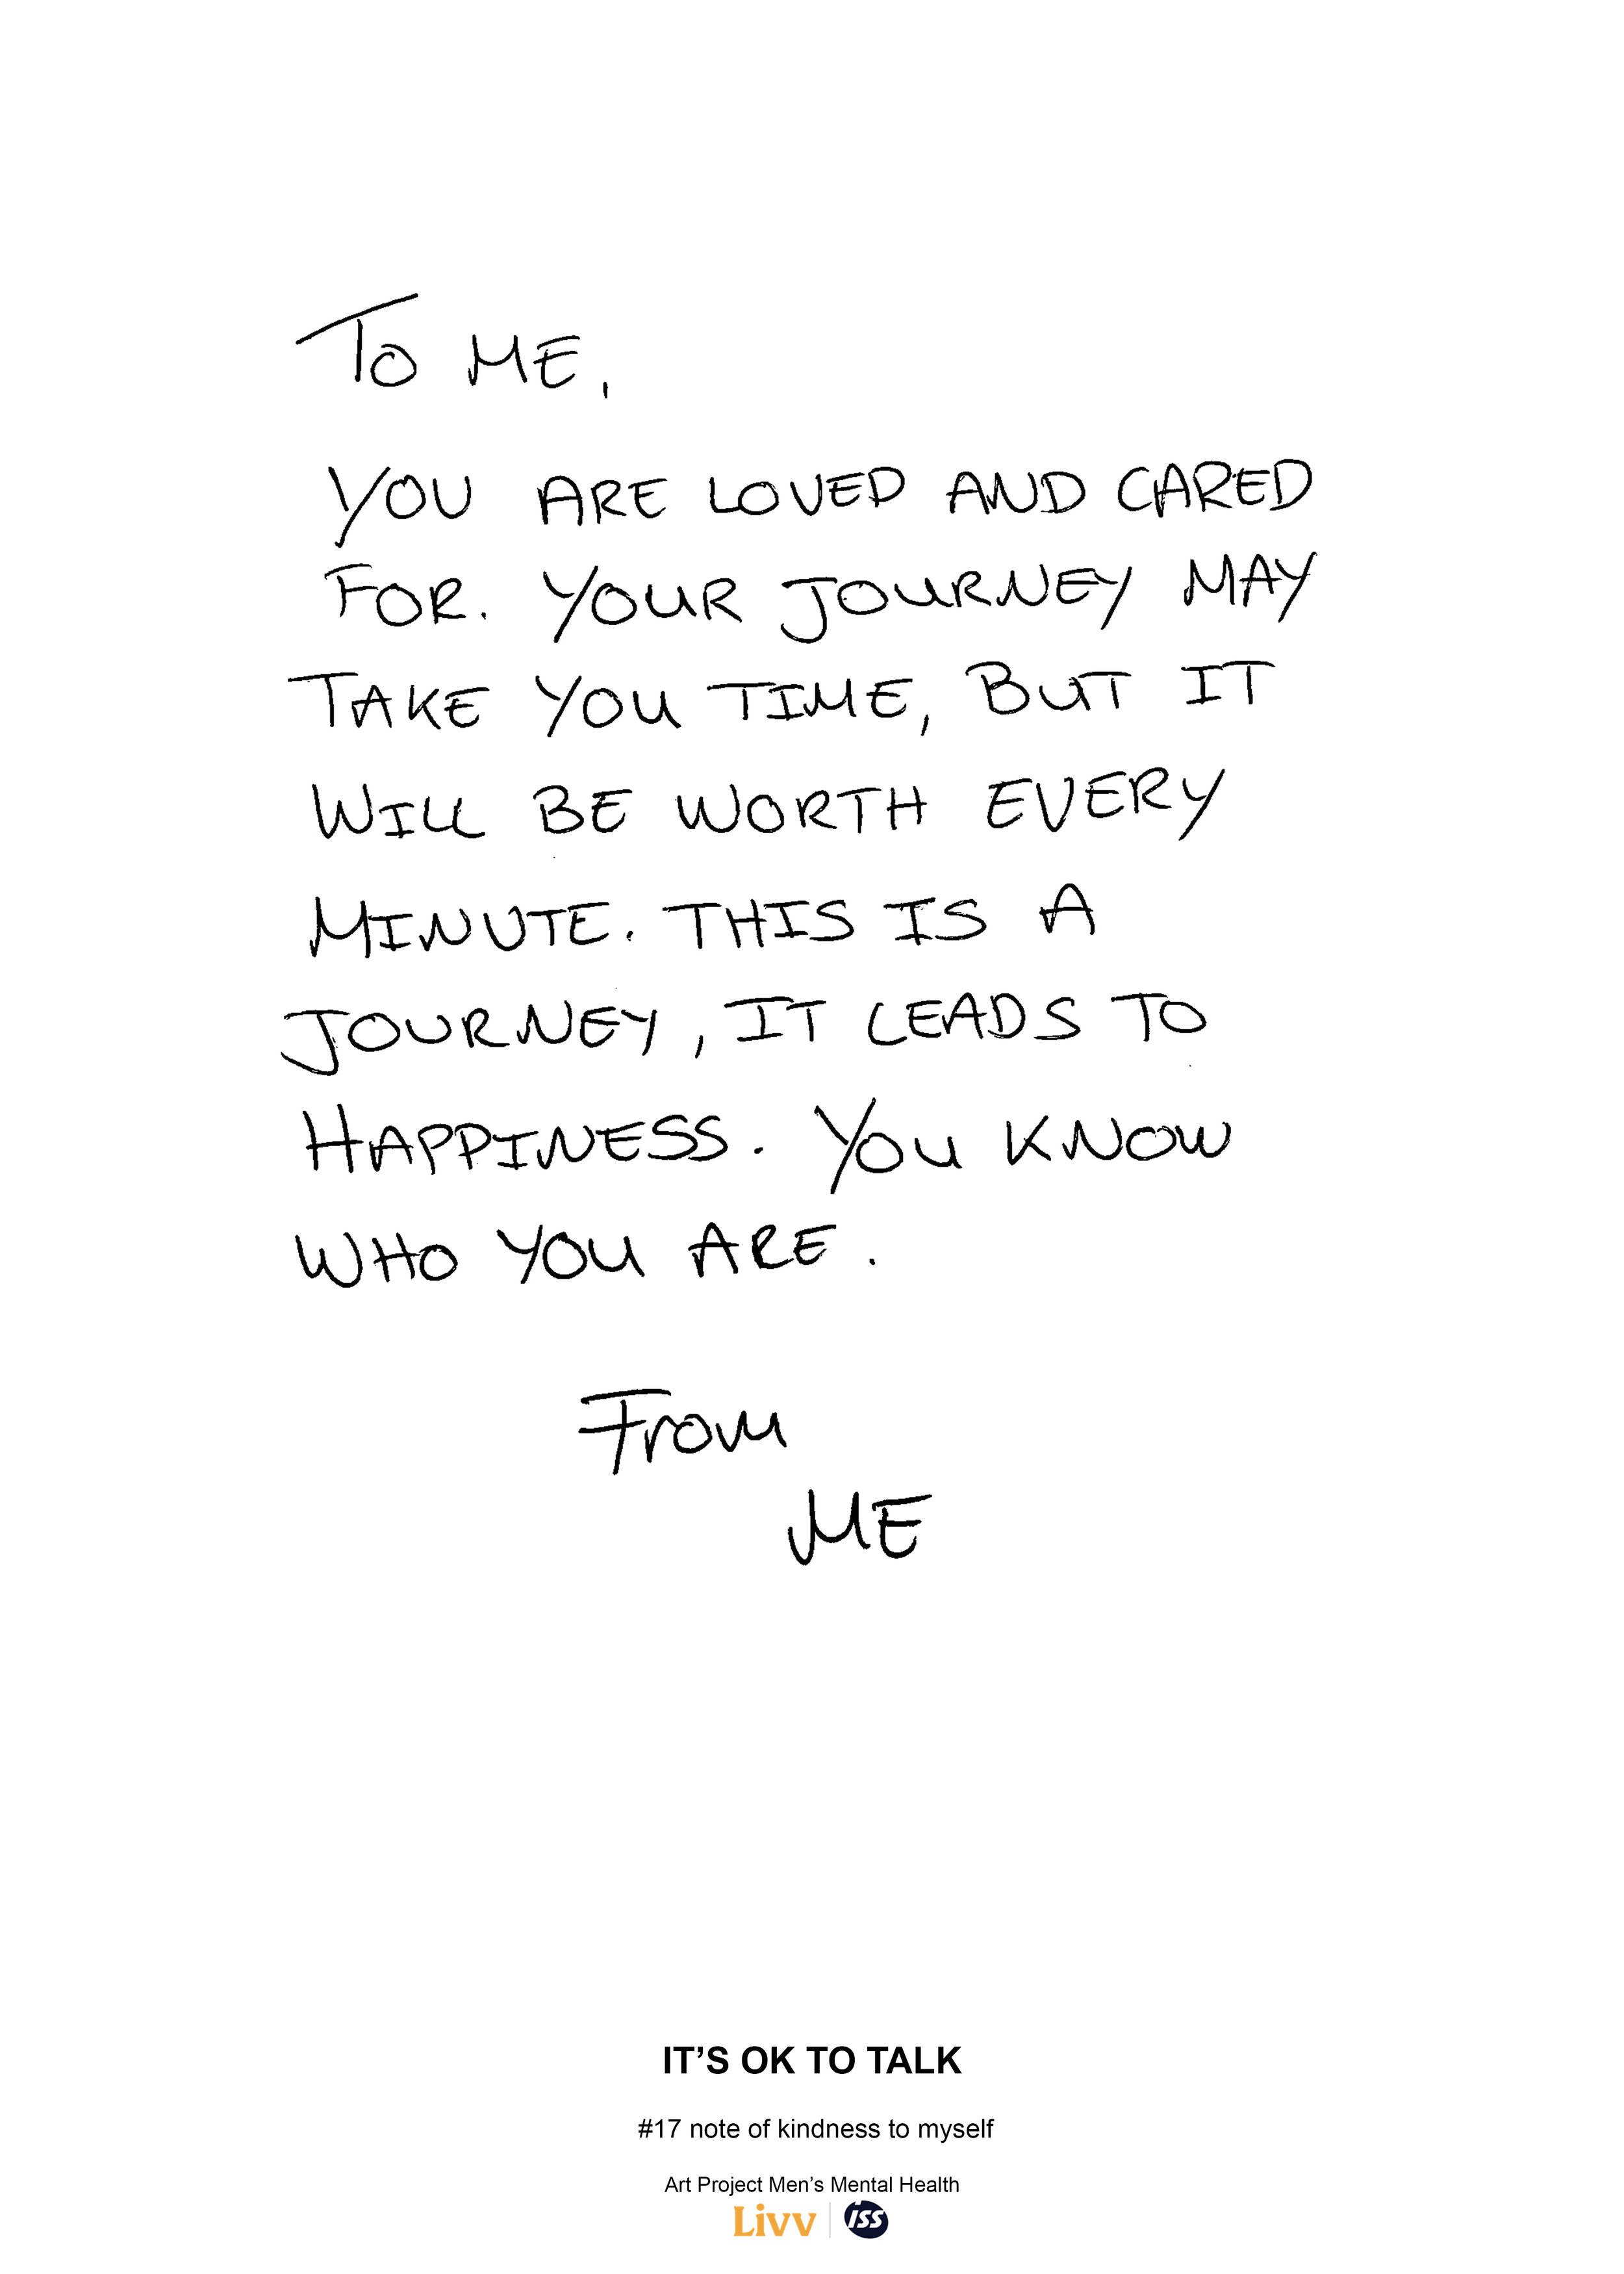 To ME,
YOU ARE LOVED AND CARED
FOR. YOUR JOURNEY MAY
TAKE YOU TIME, BUT IT
WILL BE WORTH EVERY
MINUTE. THIS IS A
JOURNEY, IT LEADS TO
HAPPINESS. YOU KNOW
WHO YOU ARE.
From
ME
IT’S OK TO TALK
#17 note of kindness to myself
Art Project Men’s Mental Health
Livv ISS